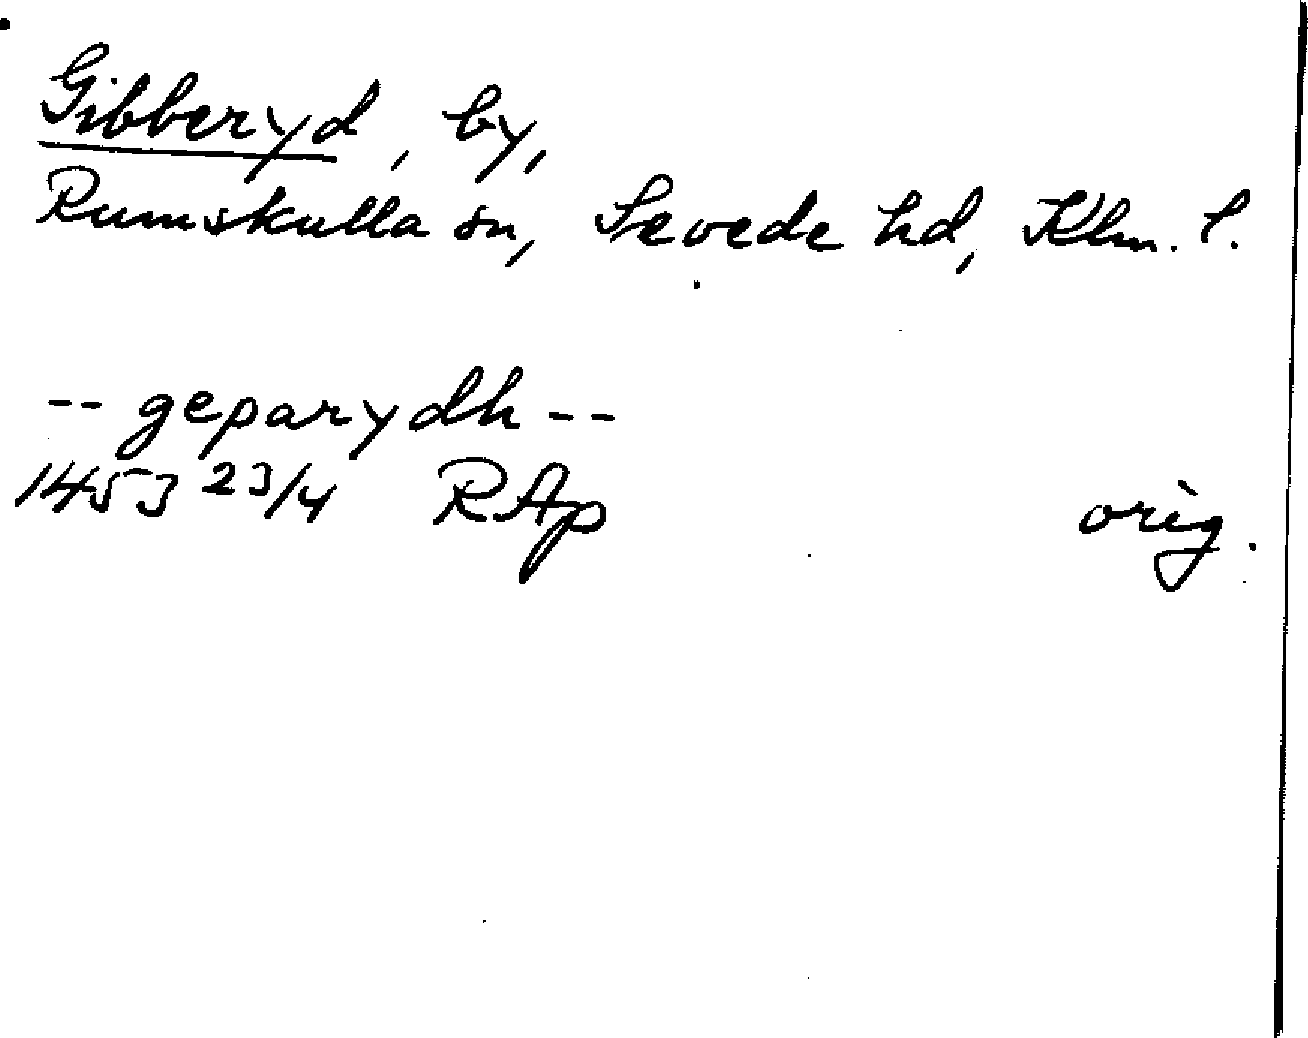 Gibberyd, by,
Rumskulla sn, Sevede hd, Klm. l.
-- geparydh --
1453 23/4 RAp orig.